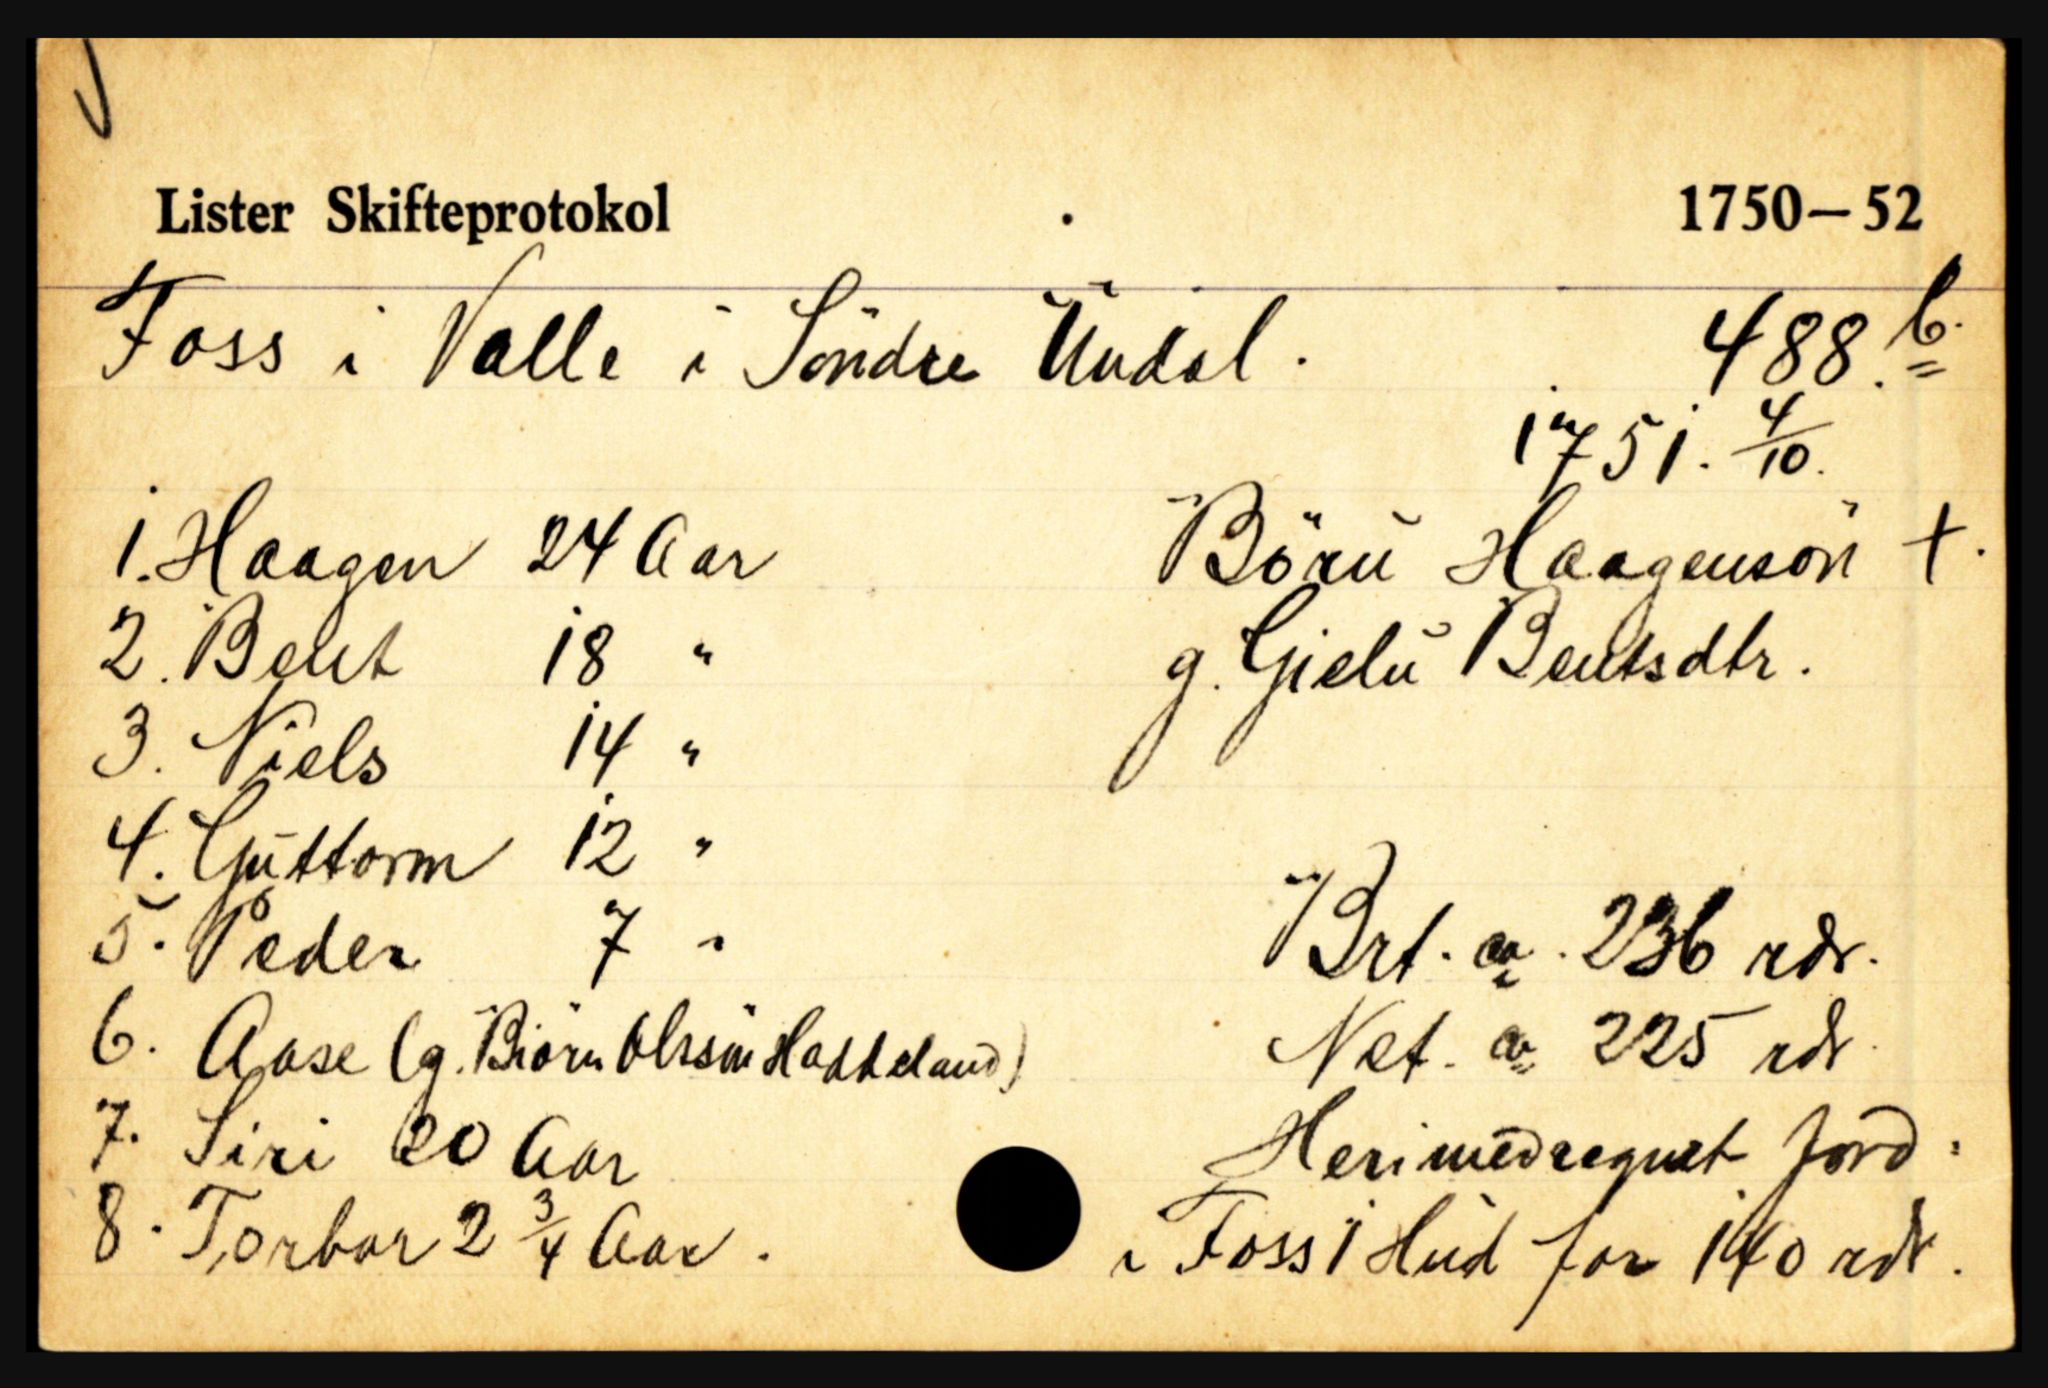 Lister Skifteprotokol 1750–52
Foss i Valle i Söndre Undal. 488.b.
1751. 4/10.
1. Haagen 24 Aar
2. Bent 18 "
3. Niels 14 "
4. Guttorm 12 "
5. Peder 7 "
6. Aase (g. Biörn Olssön Haddeland)
7. Siri 20 Aar
8. Torbor 2 3/4 Aar.
Börn Haagensön †.
g. Gielu Bentsdtr.
Brt. ca. 236 rdr.
Net. ca 225 rdr
Heri medregnet Jord
i Foss 1 Hud for 140 rdr.